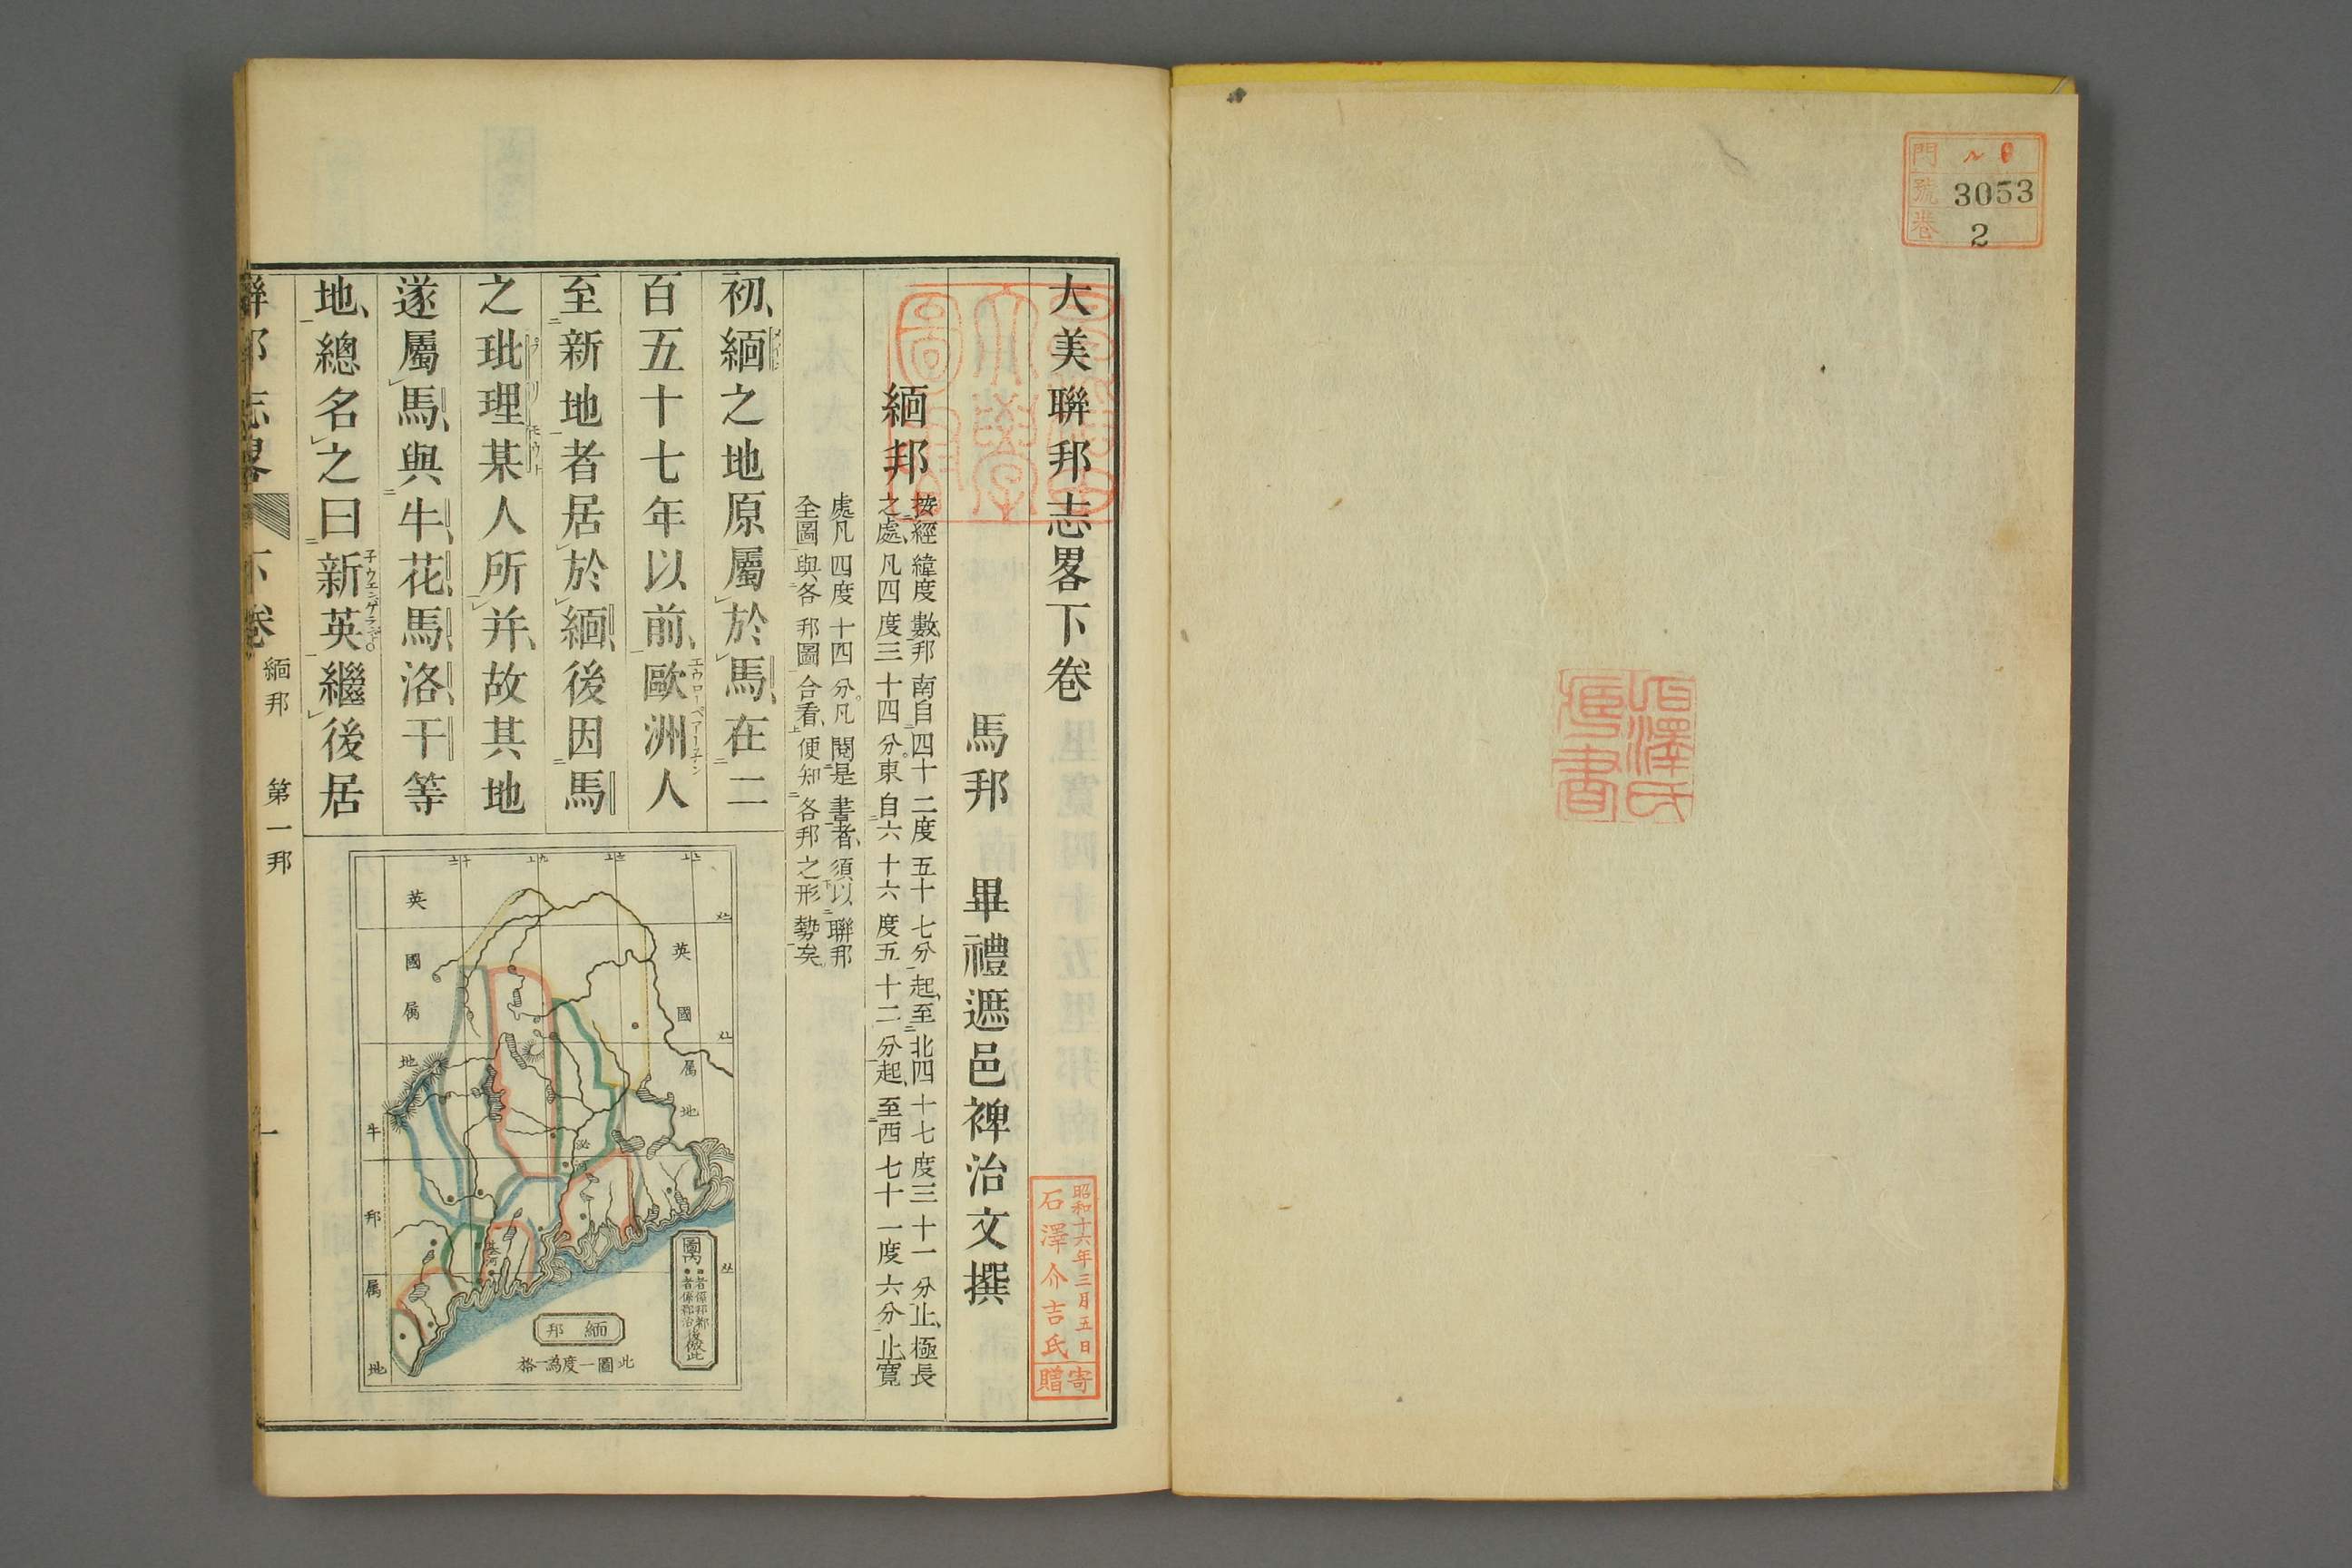 門
號 3053
卷 2
石澤氏
寫書
大美聯邦志畧下卷
昭和十六年三月五日
石澤介吉氏
寄贈
馬邦 畢禮遮邑裨治文撰
緬邦
按經緯度數、邦南自四十二度五十七分起、至北四十七度三十一分止、極長
之處、凡四度三十四分。東自六十六度五十二分起、至西七十一度六分止、寬
處凡四度十四分。凡閱是書者、須以聯邦
全圖與各邦圖合看、便知各邦之形勢矣
初、緬之地原屬於馬、在二
百五十七年以前、歐洲人
エウローペアーニチン
至新地者居於緬、後因馬
之玭理某人所并、故其地
プリ モウト
遂屬馬、與牛、花、馬、洛、干等
地、總名之曰新英繼後居
子ウエンゲランド
聯邦志畧
下卷
緬邦 第一邦
一
英國属地
英國属地
牛邦属地
圖內
者係邦都
者係郡治
後倣此
緬邦
此圖一度為一格